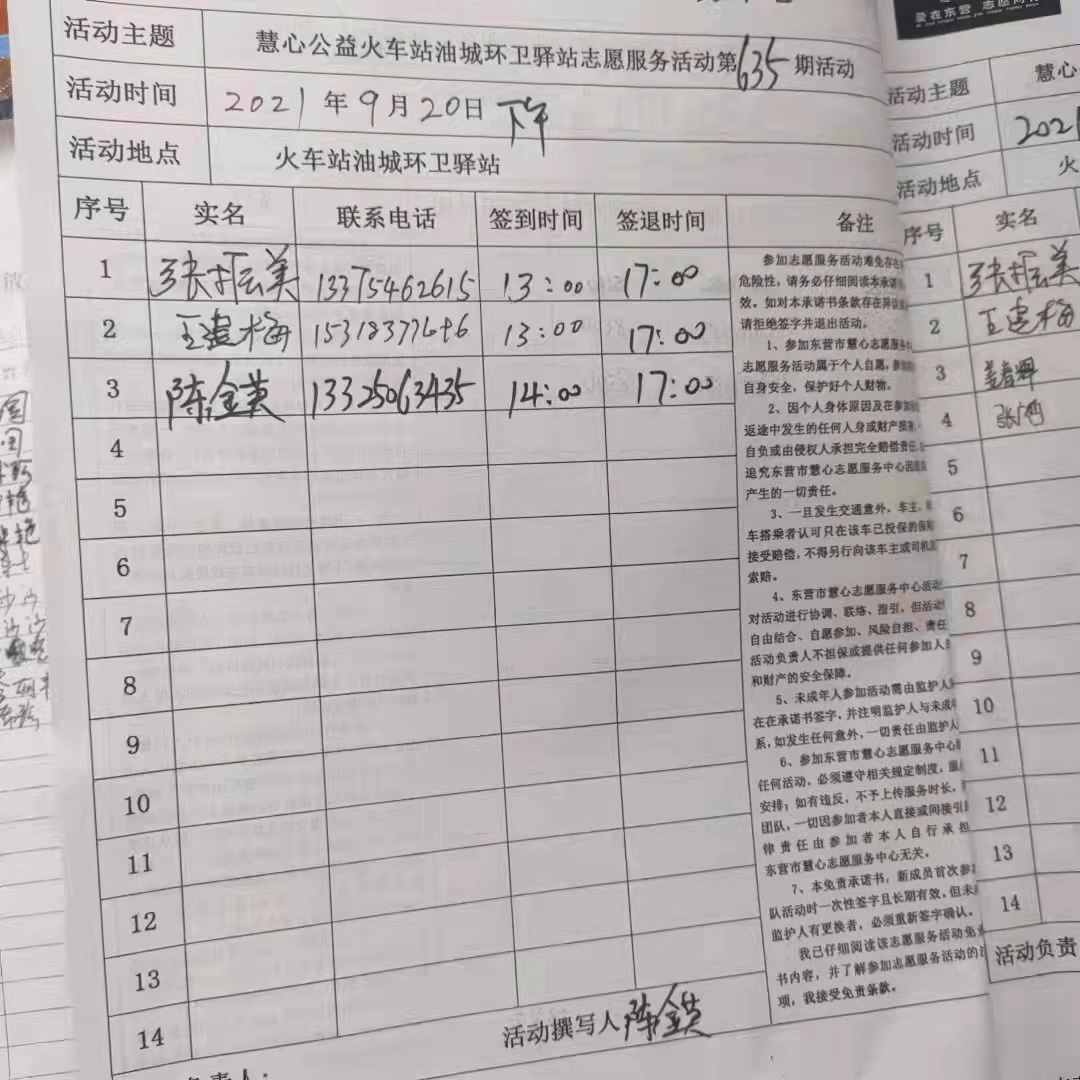 活动主题 慧心公益火车站油城环卫驿站志愿服务活动第635期活动
活动时间 2021年9月20日下午
活动地点 火车站油城环卫驿站
序号 实名 联系电话 签到时间 签退时间 备注
1 张振美 13375462615 13:00 17:00
2 王建梅 15318377646 13:00 17:00
3 陈金英 13325063435 14:00 17:00
4
5
6
7
8
9
10
11
12
13
14
参加志愿服务活动难免存在
危险性,请务必仔细阅读本承诺
效。如对本承诺书条款存在异议
请拒绝签字并退出活动。
1、参加东营市慧心志愿服务中
志愿服务活动属于个人自愿,参加
自身安全,保护好个人财物。
2、因个人身体原因及在参加
返途中发生的任何人身或财产损
自负或由侵权人承担完全赔偿责任,
追究东营市慧心志愿服务中心因
产生的一切责任。
3、一旦发生交通意外,车主、
车搭乘者认可只在该车已投保的保
接受赔偿,不得另行向该车主或司机
索赔。
4、东营市慧心志愿服务中心活动
对活动进行协调、联络、指引,但活动
自由结合、自愿参加、风险自担、责任
活动负责人不担保或提供任何参加人
和财产的安全保障。
5、未成年人参加活动需由监护人
在在承诺书签字,并注明监护人与未成
系,如发生任何意外,一切责任由监护人
6、参加东营市慧心志愿服务中心
任何活动,必须遵守相关规定制度,服
安排;如有违反,不予上传服务时长,
团队,一切因参加者本人直接或间接引
律责任由参加者本人自行承担
东营市慧心志愿服务中心无关。
7、本免责承诺书,新成员首次参
队活动时一次性签字且长期有效。但未
监护人有更换者,必须重新签字确认。
我已仔细阅读该志愿服务活动免
书内容,并了解参加志愿服务活动的
项,我接受免责条款。
活动撰写人陈金英
负责人:
爱在东营 志愿同行
活动主题 慧心
活动时间 2021
活动地点 火
序号 实名
1 张振美
2 王建梅
3
4
5
6
7
8
9
10
11
12
13
14
活动负责